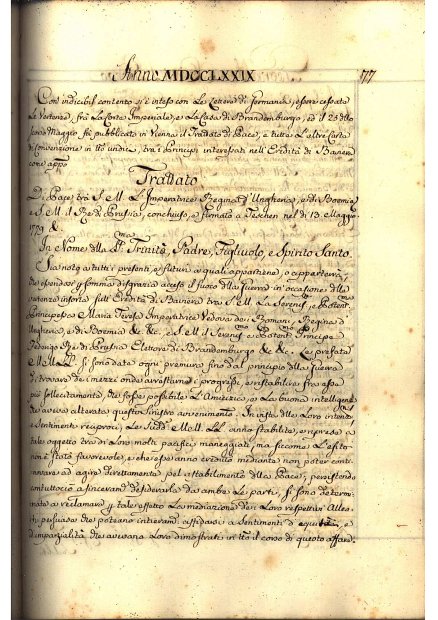 Anno MDCCLXXIX 177
Con indicibil contento s'è inteso con le Lettere di Germania, essere cessate
le Vertenze frà la Corte Imperiale, e la Casa di Brandemburgo, ed il 23 dello
Maggio fù pubblicato in Vienna il Trattato di Pace, e tutte l'altre Carte
di Convenzione in tto undici, trà i Principi interessati nell'Eredità di Baviera
come app.o
Trattato
Di Pace trà S. M. L'Imperatrice Regina d'Ungheria, e di Boemia
e S. M. il Rè di Prussia, conchiuso, e firmato a Teschen nel dì 13. Maggio
1779 &
In Nome della SSma Trinità, Padre, Figliuolo, e Spirito Santo
Sia noto a tutti i presenti, e futuri a quali appartiene, o apparterrà,
che essendosi p somma disgrazia acceso il fuoco della guerra in occasione della
vertenza insorta sull'Eredità di Baviera trà S. M. La Serenis.a e Potent.
Principessa Maria Teresa Imperatrice Vedova de Romani, Regina d'
Ungheria, e di Boemia &c. &c. e S. M. il Serenmo e Potentmo Principe
Federigo Rè di Prussia Elettore di Brandemburgo &c. &c. Le prefate
MMLL. si sono date ogni premura fino dal principio della guerra
di trovare de i mezzi onde arrestarne i progressi, e ristabilire frà esse
più sollecitamente che fosse possibile L'Amicizia, e La buona intelligenza
che aveva alterate questo sinistro avvenimento. In vista delle Loro intenzi
e Sentimenti reciproci, le Sudde MM. LL. anno stabilite, e riprese a
tale oggetto trà di Loro molti pacifici maneggiati, ma siccome L'esito
non è stato favorevole, e che esse anno creduto mediante non poter conti
nuare ad agire direttamente pel ristabilimento della Pace, persistendo
contuttociò a sinceram.e desiderarla da ambe le parti, si sono determi
nate a reclamare p tale effetto La mediazione de i Loro respettivi Alleati
persuase che poteano interam.e affidarsi a Sentimenti d'equità, e
d'imparzialità che avevano Loro dimostrati in tto il corso di questo affare.